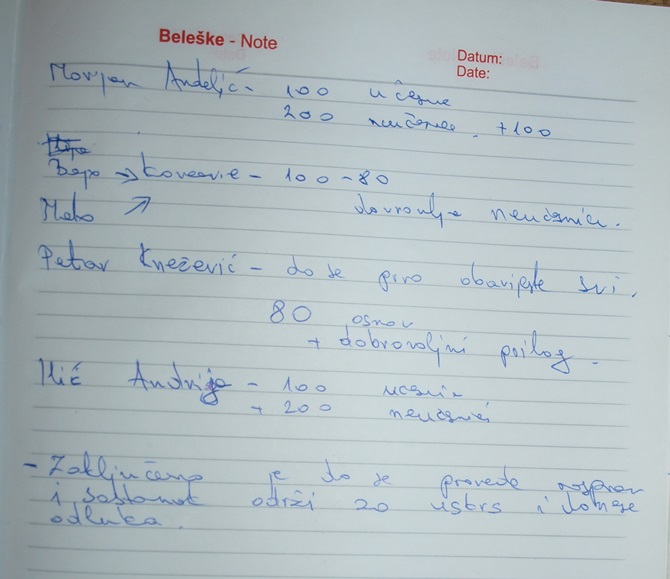 Beleške - Note
Datum:
Date:
Marjan Anđelić - 100 učesne
200 neučesnec. +100
Bepo → Kovčevic - 100 - 80
Mato ↗ dovrovlje neučsnici.
Petar Knežević - da se prvo obavijeste svi.
80 osnov
+ dobrovoljni prilog.
Ilić Andrija - 100 učesnic
+ 200 neučesnici
- Zaključeno je da se provede rasprav
i sastanak održi za uskrs i donese
odluka.